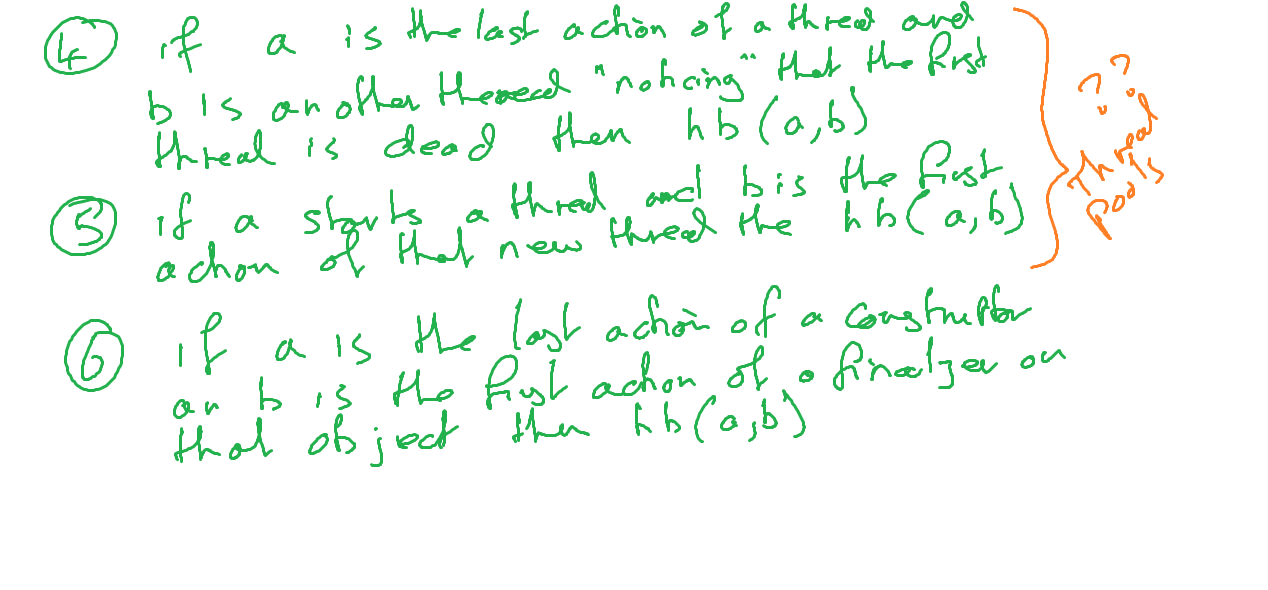 ④ if a is the last action of a thread and
b is another thread "noticing" that the first
thread is dead then hb(a,b)
⑤ if a starts a thread and b is the first
action of that new thread the hb(a,b)
?? Thread
pools
⑥ if a is the last action of a constructor
an b is the first action of a finalizer on
that object then hb(a,b)